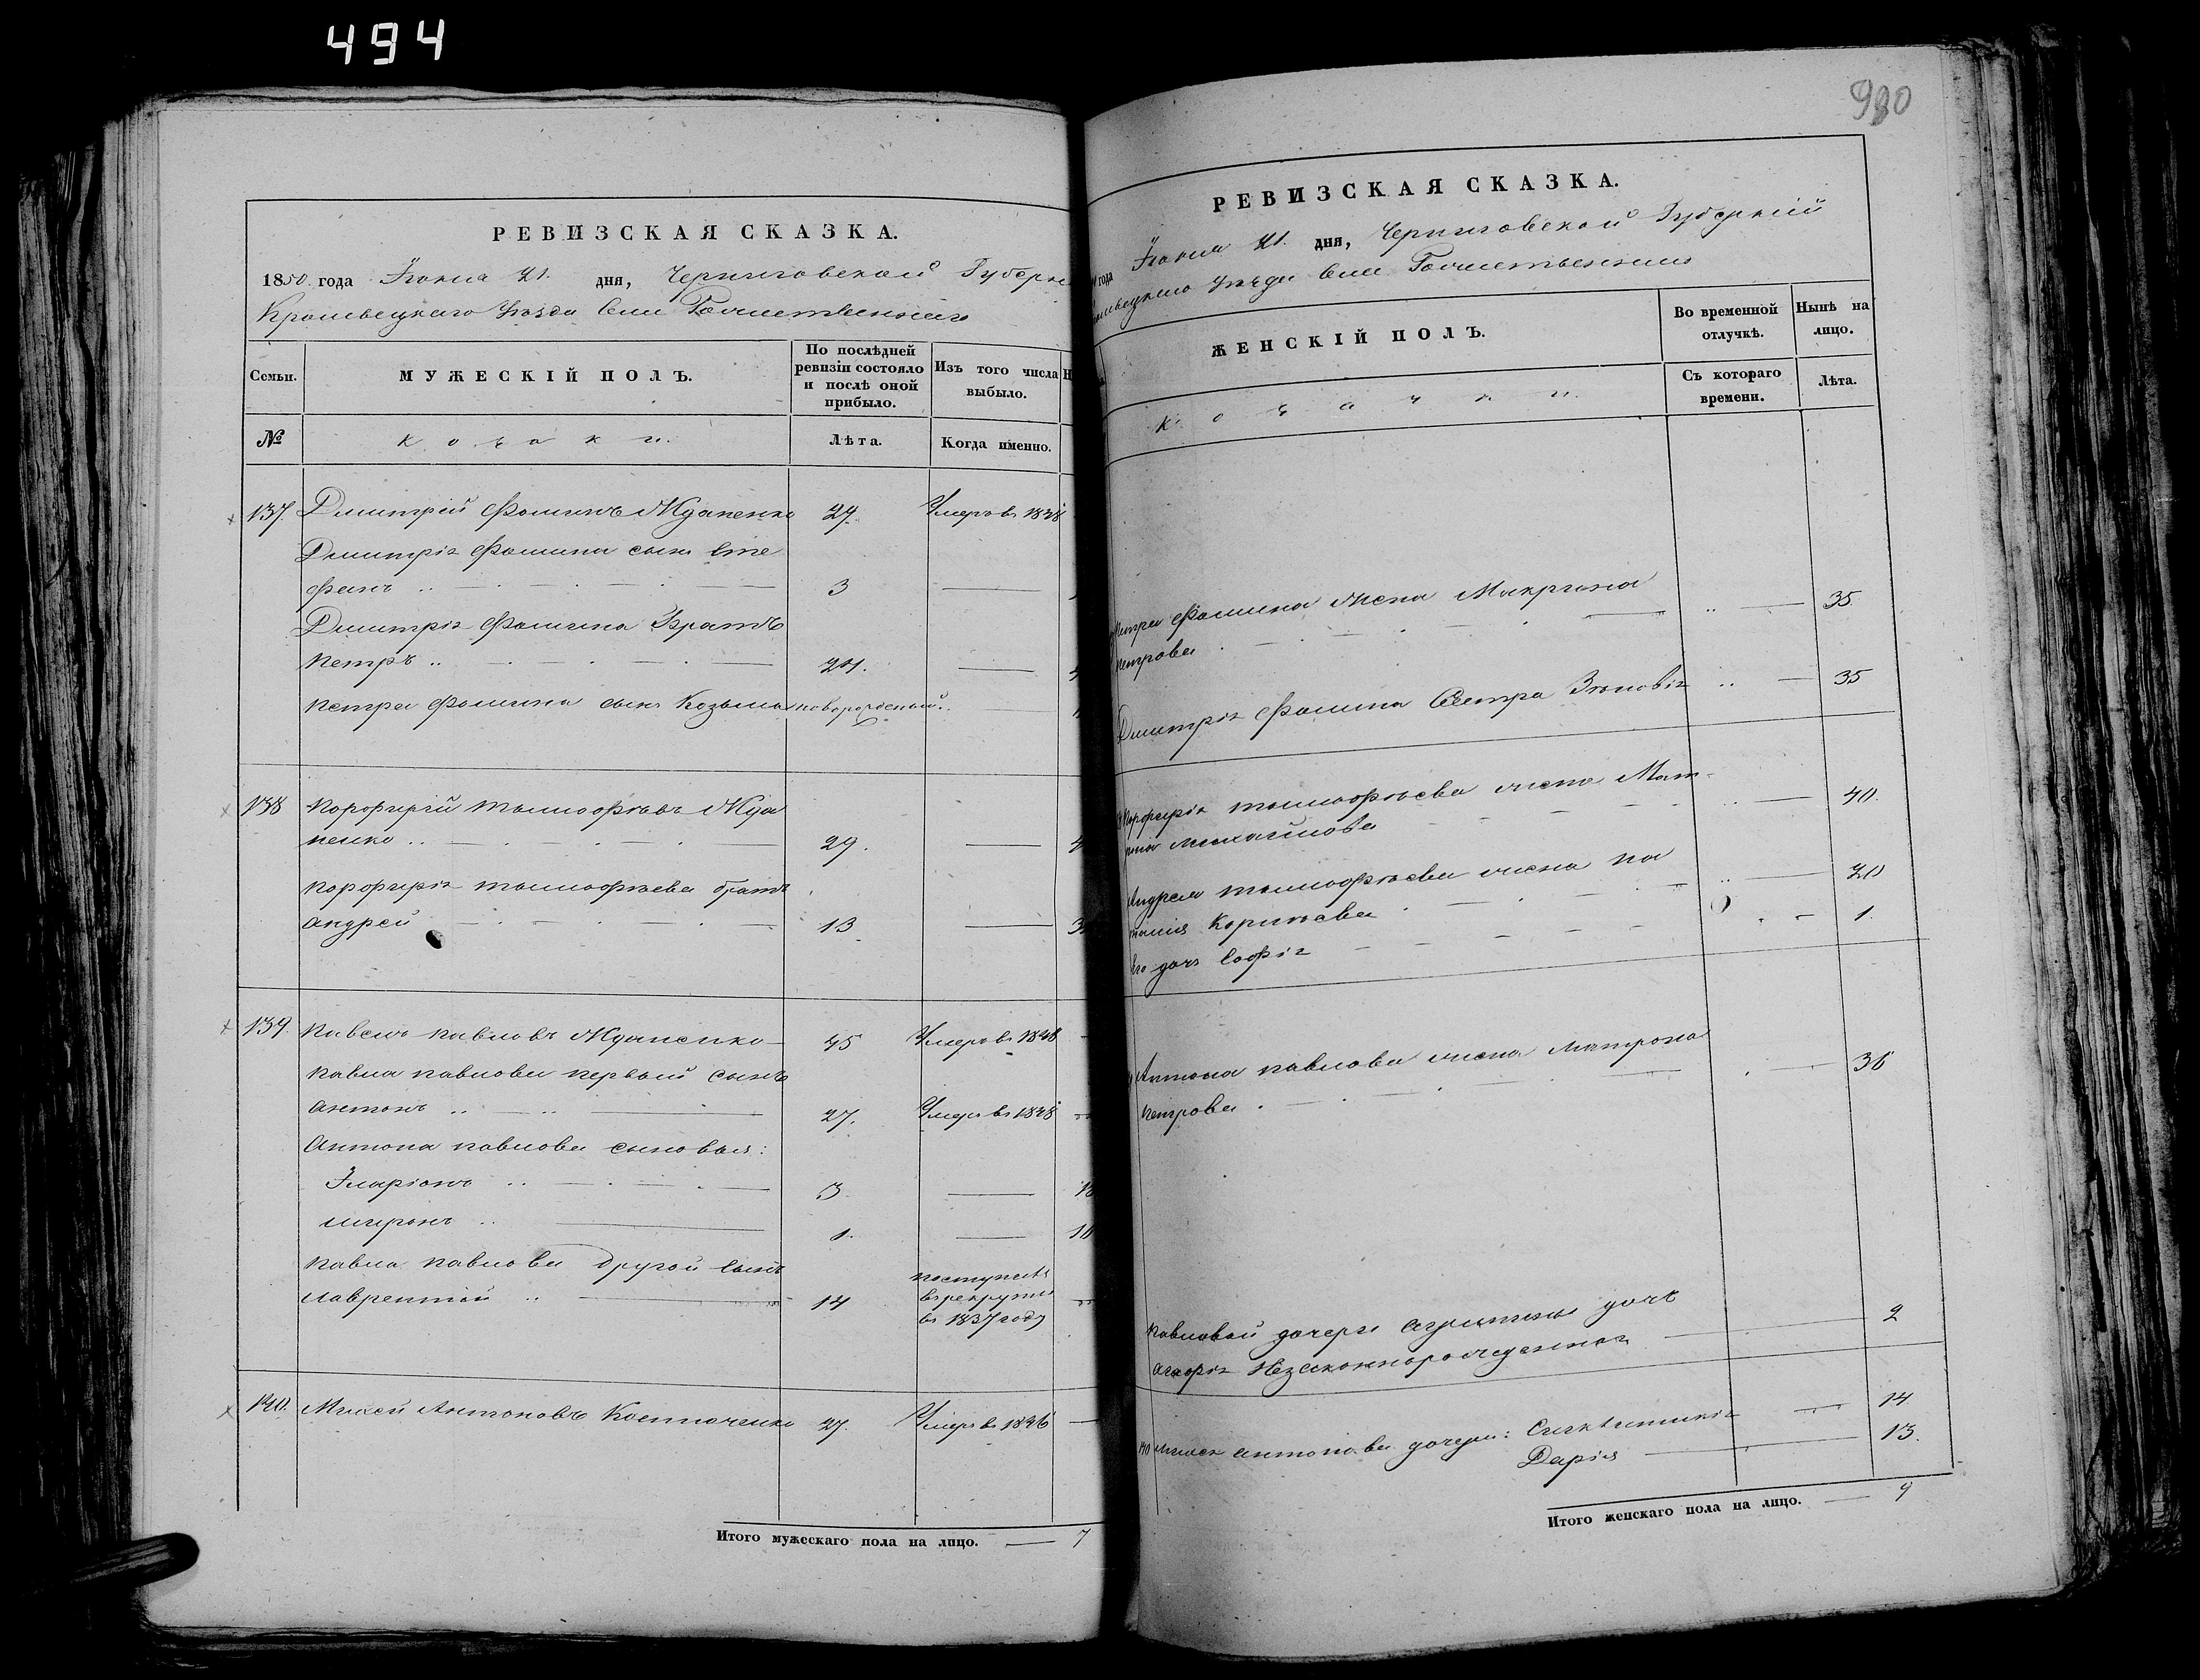 494
РЕВИЗСКАЯ СКАЗКА.
1850 года Іюня 21. дня, Черниговской Губерн
Кролевецкаго Уѣзда Села
Семьи.
МУЖЕСКІЙ ПОЛЪ.
По послѣдней ревизіи состояло и послѣ оной прибыло.
Изъ того числа выбыло.
№
козаки.
Лѣта.
Когда именно.
137. Дмитрій Фоминъ Жданенко 27. Умеръ въ 1838
Дмитрія Фомина сынъ Сте
фанъ .. 3
Дмитрія Фомина Братъ
Петръ .. 24.
Петра Фомина сынъ Козьма новорожденный..
138 Порфирій Тимофѣевъ Жда
ненко .. 29.
Порфирія Тимофѣева братъ
Андрей 13
139. Павелъ Павловъ Жданенко 45 Умеръ въ 1848
Павла Павлова первый сынъ
Антонъ .. 27. Умеръ въ 1838
Антона Павлова сыновья:
Іларіонъ .. 3
Миронъ .. 1.
Павла Павлова другой сынъ
Лаврентій .. 14 поступилъ
в рекруты
въ 1837 году
140. Мусей Антоновъ 27. Умеръ въ 1836
Итого мужескаго пола на лицо. — 7
980
РЕВИЗСКАЯ СКАЗКА.
года Іюня 21. дня, Черниговской Губерніи
Уѣзда Села
ЖЕНСКІЙ ПОЛЪ.
Во временной отлучкѣ.
Нынѣ на лицо.
козачки.
Съ котораго времени.
Лѣта.
Петра Фомина жена Макрина
Петрова 35
Дмитрія Фомина Сестра Зѣновія 35
Порфирія Тимофѣева жена Мат-
рона Михайлова 40.
Андрея Тимофѣева жена На
талія Корнѣева 20
Его дочь Софія 1.
Антона Павлова жена Матрона
Петрова. 36
Павловой дочери дочь
Незаконнорожденная 2
140 Антонова дочери: 14
Дарія 13.
Итого женскаго пола на лицо. — 9